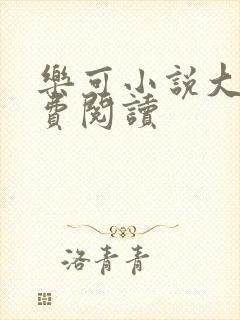 樂可小説大
費閱讀
洛青青